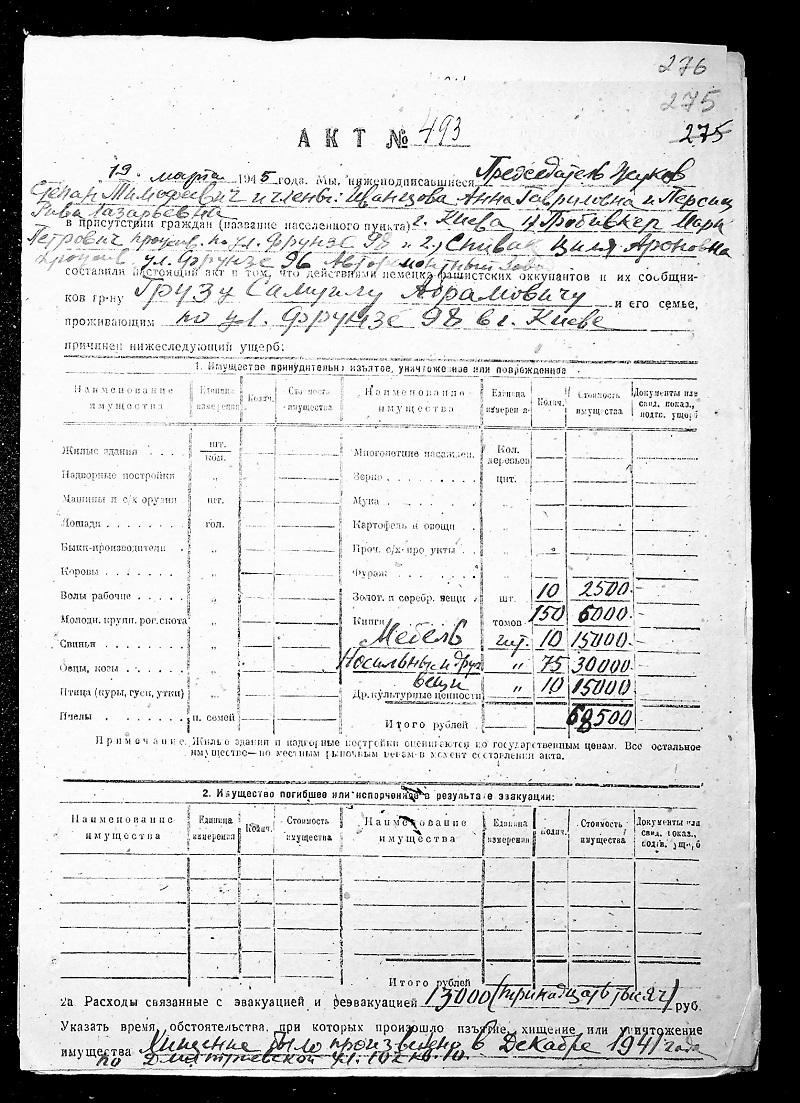 276
275
275
АКТ № 493
19. марта 1945 года. Мы, нижеподписавшиеся Председатель Жуков
Степан Тимофеевич и члены: Иванцова Анна Гавриловна и Персиц
Рива Лазарьевна
в присутствии граждан (название населенного пункта) г. Киева 1) Мари
Петрович прожив. по ул. Фрунзе 98 и 2) Спивак Циля Ароновна
прожив. ул. Фрунзе 96
составили настоящий акт в том, что действиями немецко-фашистских оккупантов и их сообщни-
ков гр-ну Грузу Самуилу Абрамовичу и его семье,
проживающим по ул. Фрунзе 98 в г. Киеве
причинен нижеследующий ущерб:
1. Имущество принудительно изъятое, уничтоженное или поврежденное
Наименование имущества Единица измерения Колич. Стоимость имущества Наименование имущества Единица измерения Колич. Стоимость имущества Документы или свид. показ., подтв. ущерб
Жилые здания . . . . шт. ком. Многолетние насажден. Кол. деревьев
Надворные постройки " Зерно . . . . . . . цнт.
Машины и с/х орудия шт. Мука . . . . . . . "
Лошади . . . . . . . гол. Картофель и овощи . "
Быки-производители . " Проч. с/х продукты . . "
Коровы . . . . . . . " Фураж . . . . . . . "
Волы рабочие . . . . " Золот. и серебр. вещи . шт. 10 2500.-
Молодн. крупн. рог. скота " Книги томов 150 6000.-
Свиньи . . . . . . . " Мебель шт. 10 15000.-
Овцы, козы . . . . . " Носильные и друг. вещи " 75 30000.-
Птица (куры, гуси, утки) " Др. культурные ценности " 10 15000.-
Пчелы . . . . . . . п. семей Итого рублей 68500
Примечание. Жилые здания и надворные постройки оцениваются по государственным ценам. Все остальное
имущество—по местным рыночным ценам в момент составления акта.
2. Имущество погибшее или испорченное в результате эвакуации:
Наименование имущества Единица измерения Колич. Стоимость имущества Наименование имущества Единица измерения Колич. Стоимость имущества Документы или свид. показ., подтв. ущерб
Итого рублей
2а Расходы связанные с эвакуацией и реэвакуацией 13000 (тринадцать тысяч) руб.
Указать время, обстоятельства, при которых произошло изъятие, хищение или уничтожение
имущества Хищение было произведено в Декабре 1941 года
по Дмитриевской ул. 102 кв. 10.